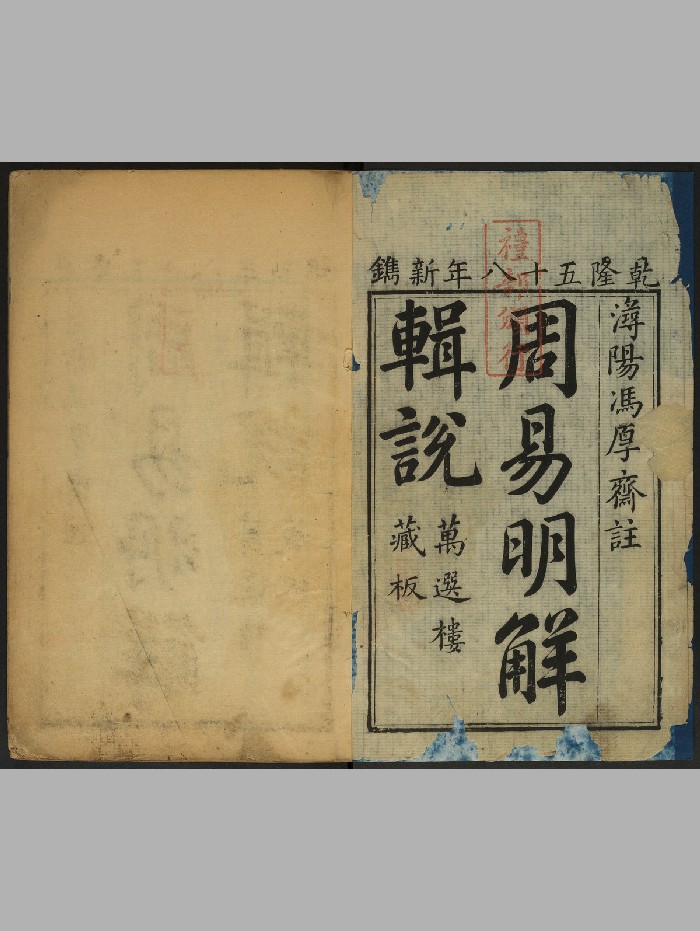 乾隆五十八年新鐫
潯陽馮厚齋註
周易明解
輯說
萬選樓
藏板
禮部頒行